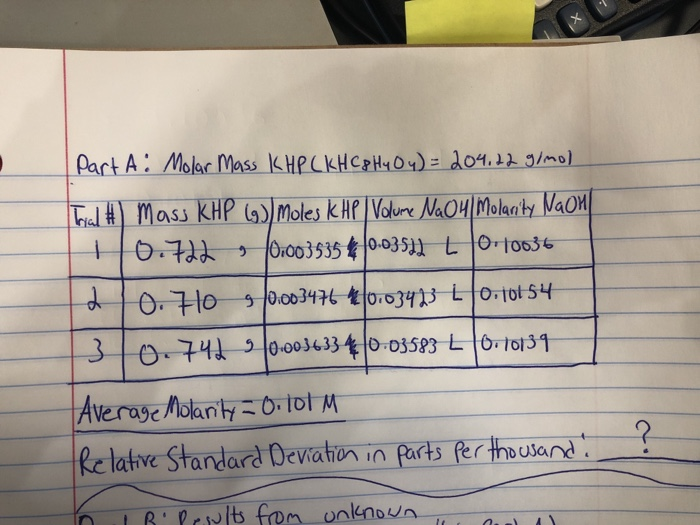 Part A: Molar Mass KHP (KHC8H4O4) = 204.22 g/mol
Trial # Mass KHP (g) Moles KHP Volume NaOH Molarity NaOH
1 0.722 g 0.003535 0.03522 L 0.10036
2 0.710 g 0.003476 0.03423 L 0.10154
3 0.742 g 0.003633 0.03583 L 0.10139
Average Molarity = 0.101 M
Relative Standard Deviation in parts per thousand: ?
B: Results from unknown